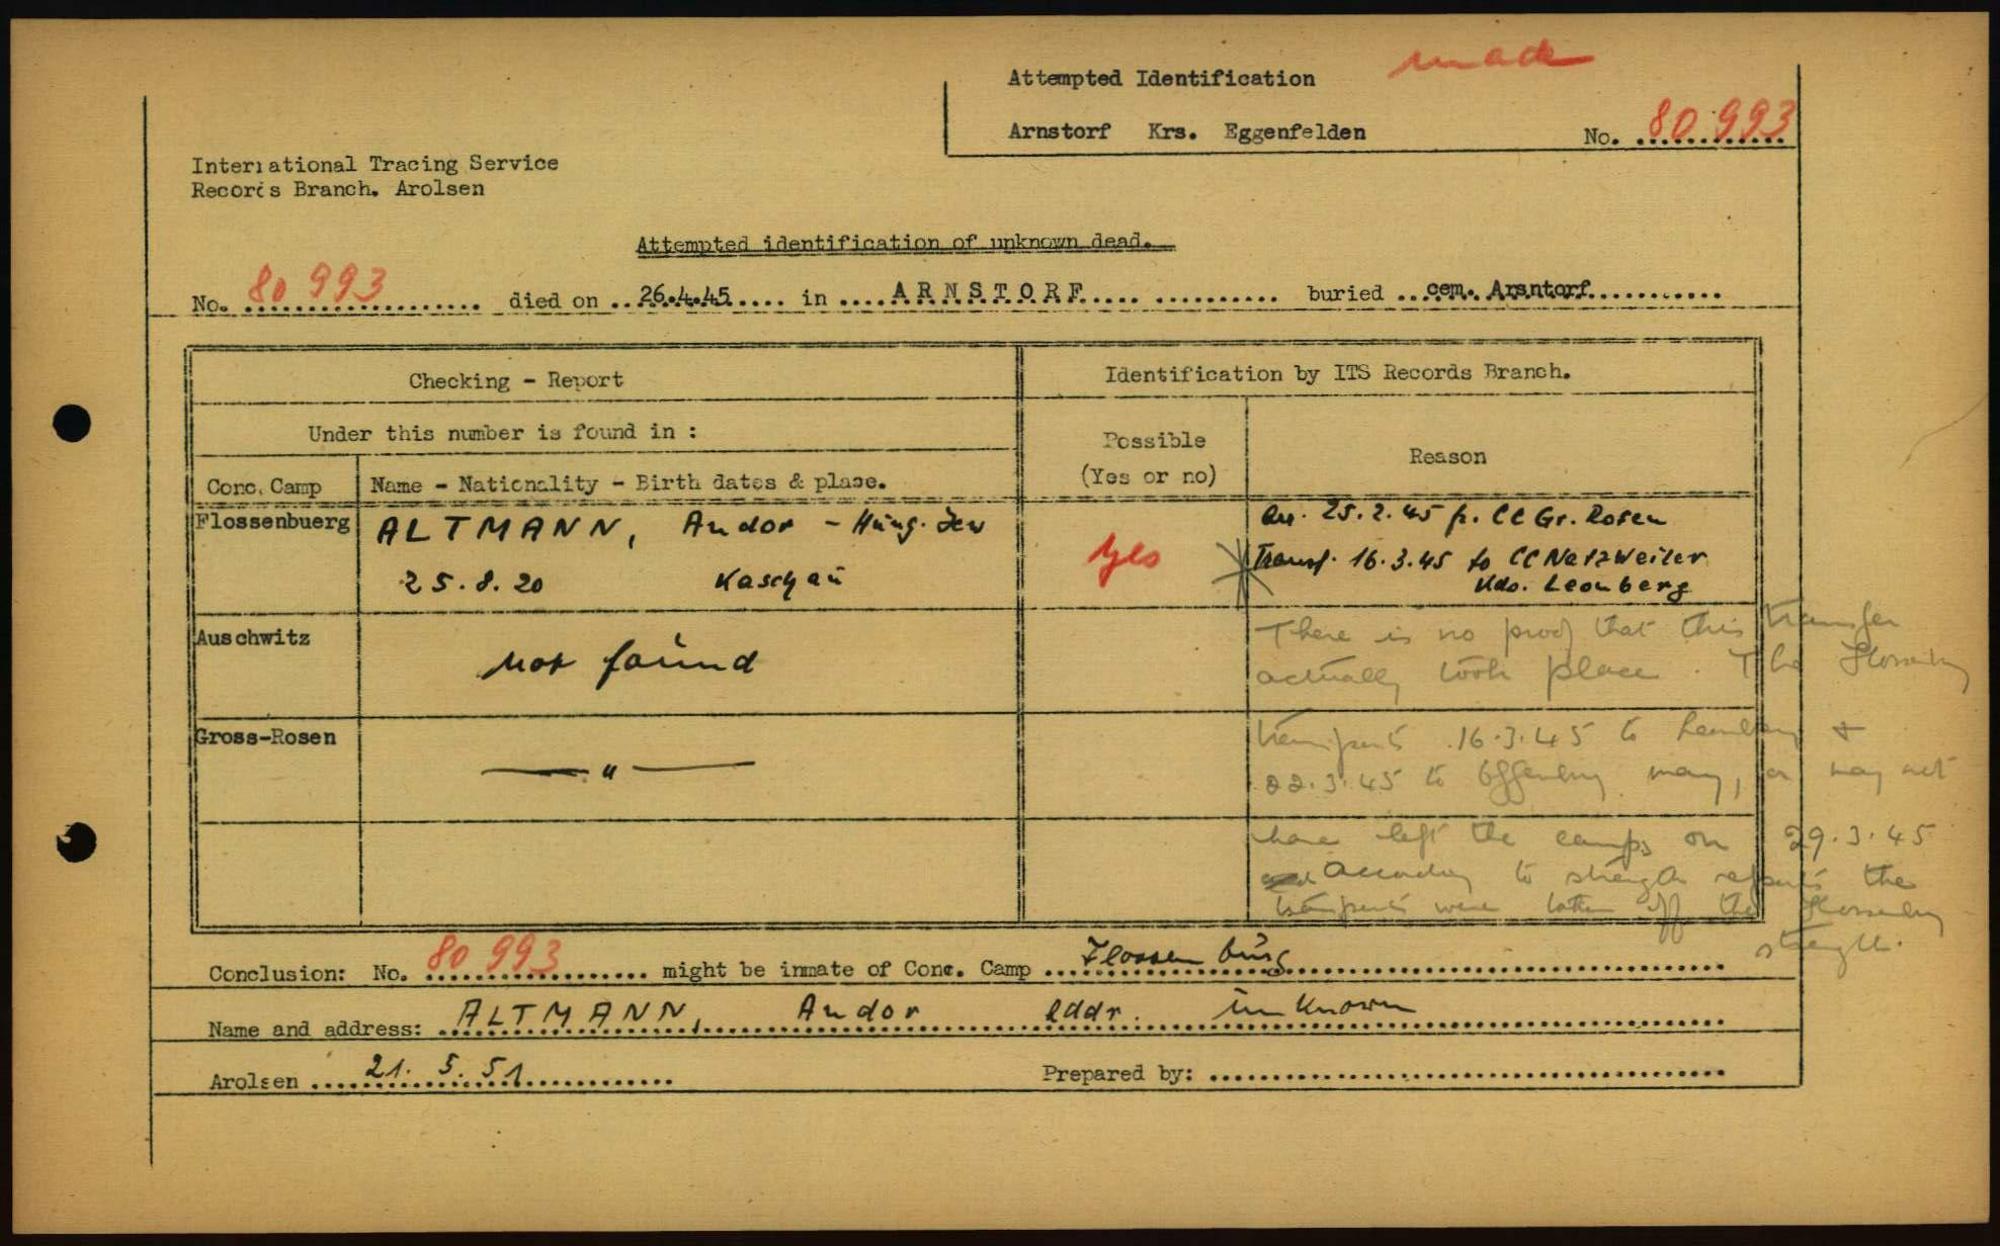 made
Attempted Identification
Arnstorf Krs. Eggenfelden No. 80 993
International Tracing Service
Records Branch. Arolsen
Attempted identification of unknown dead.
No. 80 993 died on 26.4.45 in ARNSTORF buried cem. Arsntorf
Checking - Report
Identification by ITS Records Branch.
Under this number is found in :
Possible
(Yes or no)
Reason
Conc. Camp
Name - Nationality - Birth dates & place.
Flossenbuerg
ALTMANN, Andor - Hung. Jew
25.8.20 Kaschau
Yes
Arr. 25.2.45 fr. CC Gr. Rosen
Transf. 16.3.45 to CC Natzweiler
Kdo. Leonberg
Auschwitz
not found
There is no proof that this transfer
actually took place. The Flossenbürg
Gross-Rosen
— " —
transports 16.3.45 to Leonberg +
22.3.45 to Offenburg may, or may not
have left the camps on 29.3.45
According to strength reports the
transports were taken off the Flossenbürg
strength.
Conclusion: No. 80 993 might be inmate of Conc. Camp Flossenbürg
Name and address: ALTMANN, Andor addr. unknown
Arolsen 21. 5. 51
Prepared by: